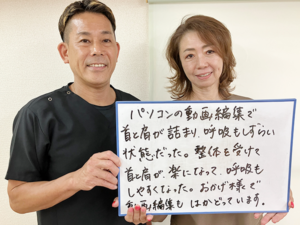 パソコンの動画編集で
首と肩が詰まり、呼吸もしずらい
状態だった。整体を受けて
首と肩が、楽になって、呼吸も
しやすくなった。おかげ様で
動画編集も はかどっています。